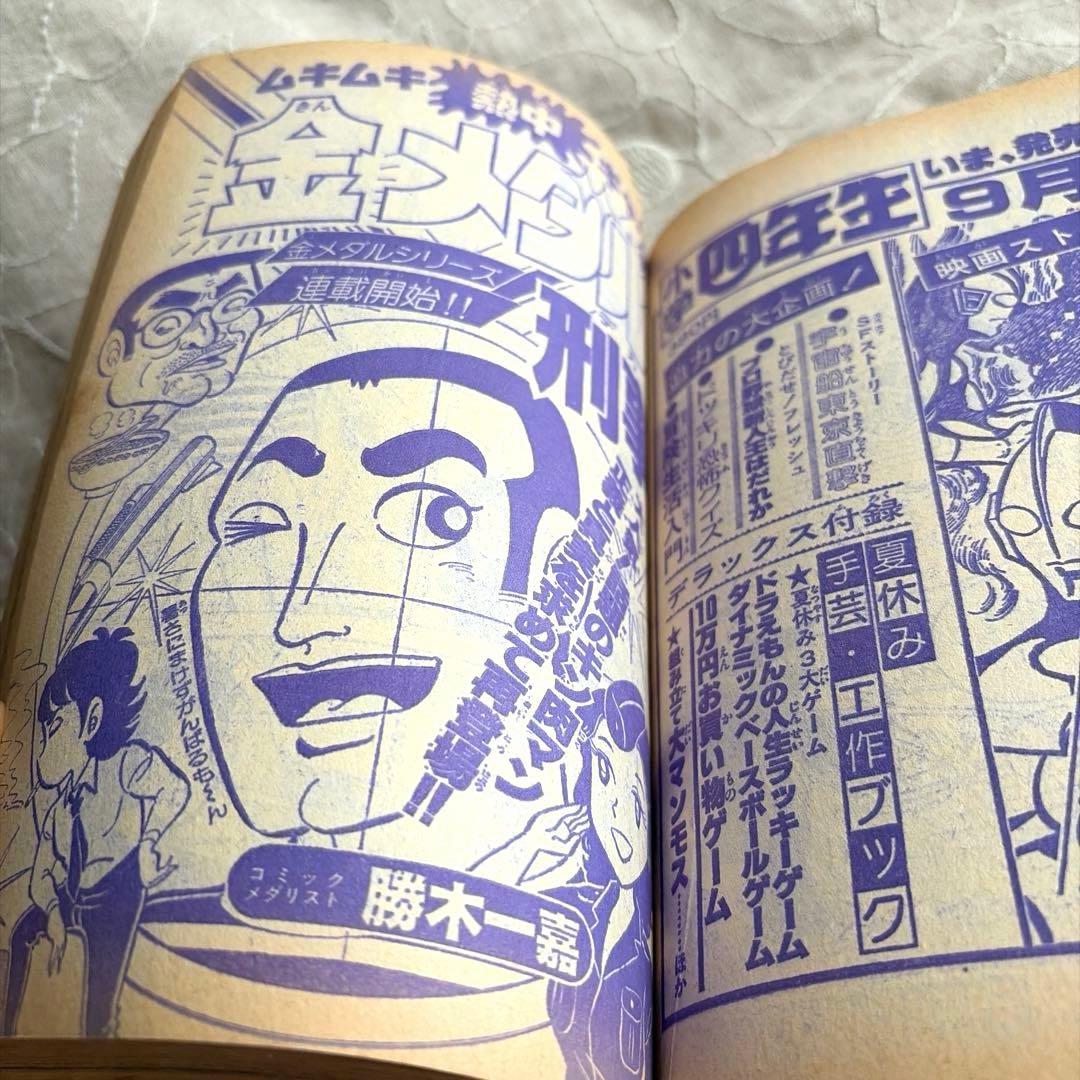 ムキムキ
熱中
金メダル
きん
金メダルシリーズ
連載開始!!
れんさいかいし
刑
再登場!!
暑さにまけずがんばるおくん
コミック
メダリスト
勝木一嘉
小学四年生
いま、発売
9月
映画スト
力の大企画!
SFストーリー
宇宙船東京直撃
とびだせ!フレッシュ
プロ野球新人王はだれか
恐怖クイズ
デラックス付録
夏休み
手芸・工作ブック
★夏休み3大ゲーム
ドラえもんの人生ラッキーゲーム
ダイナミックベースボールゲーム
10万円お買い物ゲーム
★組み立て大マンモス………ほか